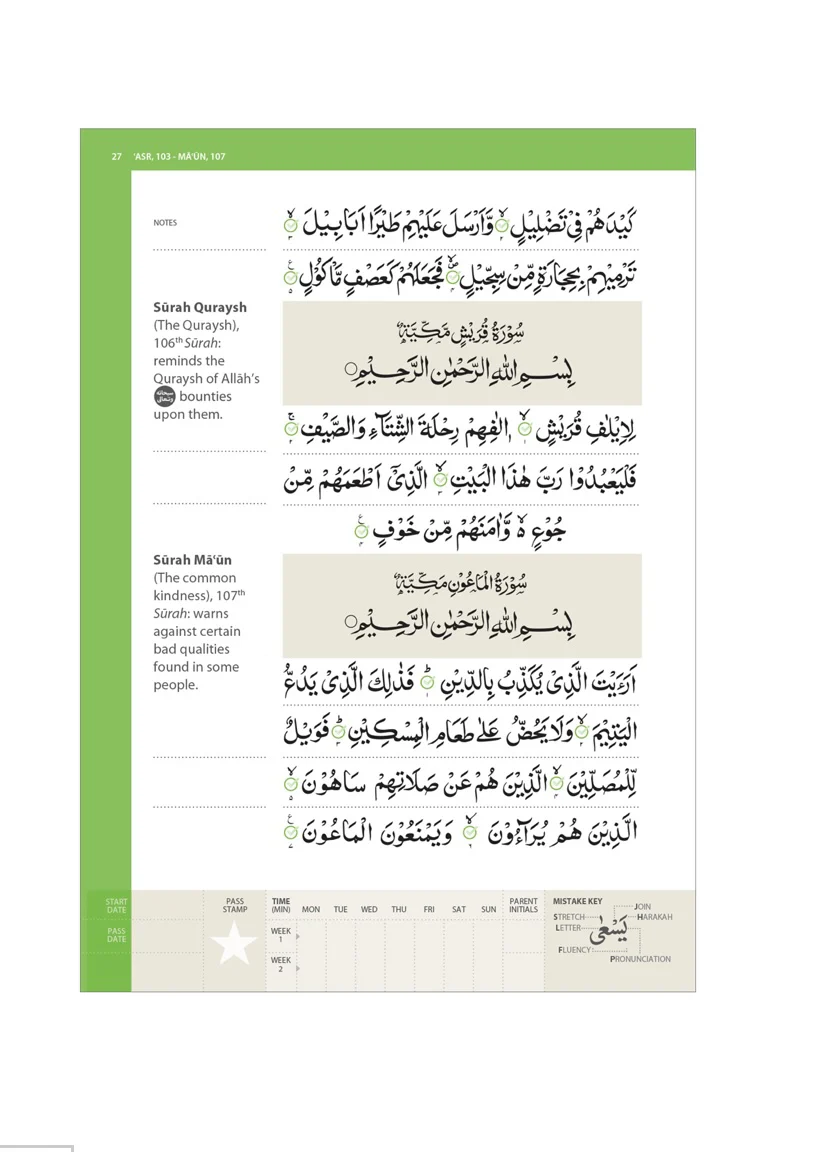 27 ʻASR, 103 - MĀʻŪN, 107
NOTES
كَيْدَهُمْ فِيْ تَضْلِيْلٍ ۙ وَّاَرْسَلَ عَلَيْهِمْ طَيْرًا اَبَابِيْلَ ۙ
تَرْمِيْهِمْ بِحِجَارَةٍ مِّنْ سِجِّيْلٍ ۪ۙ فَجَعَلَهُمْ كَعَصْفٍ مَّاْكُوْلٍ ع
Sūrah Quraysh
(The Quraysh),
106th Sūrah:
reminds the
Quraysh of Allāh’s
سبحانه وتعالى bounties
upon them.
سُوْرَةُ قُرَيْشٍ مَكِّيَّةٌ
بِسْمِ اللهِ الرَّحْمٰنِ الرَّحِيْمِ
لِاِيْلٰفِ قُرَيْشٍ ۙ اٖلٰفِهِمْ رِحْلَةَ الشِّتَآءِ وَالصَّيْفِ ۚ
فَلْيَعْبُدُوْا رَبَّ هٰذَا الْبَيْتِ ۙ الَّذِيْٓ اَطْعَمَهُمْ مِّنْ
جُوْعٍ ەۙ وَّاٰمَنَهُمْ مِّنْ خَوْفٍ ع
Sūrah Māʻūn
(The common
kindness), 107th
Sūrah: warns
against certain
bad qualities
found in some
people.
سُوْرَةُ الْمَاعُوْنِ مَكِّيَّةٌ
بِسْمِ اللهِ الرَّحْمٰنِ الرَّحِيْمِ
اَرَءَيْتَ الَّذِيْ يُكَذِّبُ بِالدِّيْنِ ؕ فَذٰلِكَ الَّذِيْ يَدُعُّ
الْيَتِيْمَ ۙ وَلَا يَحُضُّ عَلٰى طَعَامِ الْمِسْكِيْنِ ؕ فَوَيْلٌ
لِّلْمُصَلِّيْنَ ۙ الَّذِيْنَ هُمْ عَنْ صَلَاتِهِمْ سَاهُوْنَ ۙ
الَّذِيْنَ هُمْ يُرَآءُوْنَ ۙ وَيَمْنَعُوْنَ الْمَاعُوْنَ ع
START DATE
PASS DATE
PASS STAMP
TIME (MIN) MON TUE WED THU FRI SAT SUN
WEEK 1
WEEK 2
PARENT INITIALS
MISTAKE KEY
JOIN
STRETCH
HARAKAH
LETTER
يَسْعٰى
FLUENCY
PRONUNCIATION